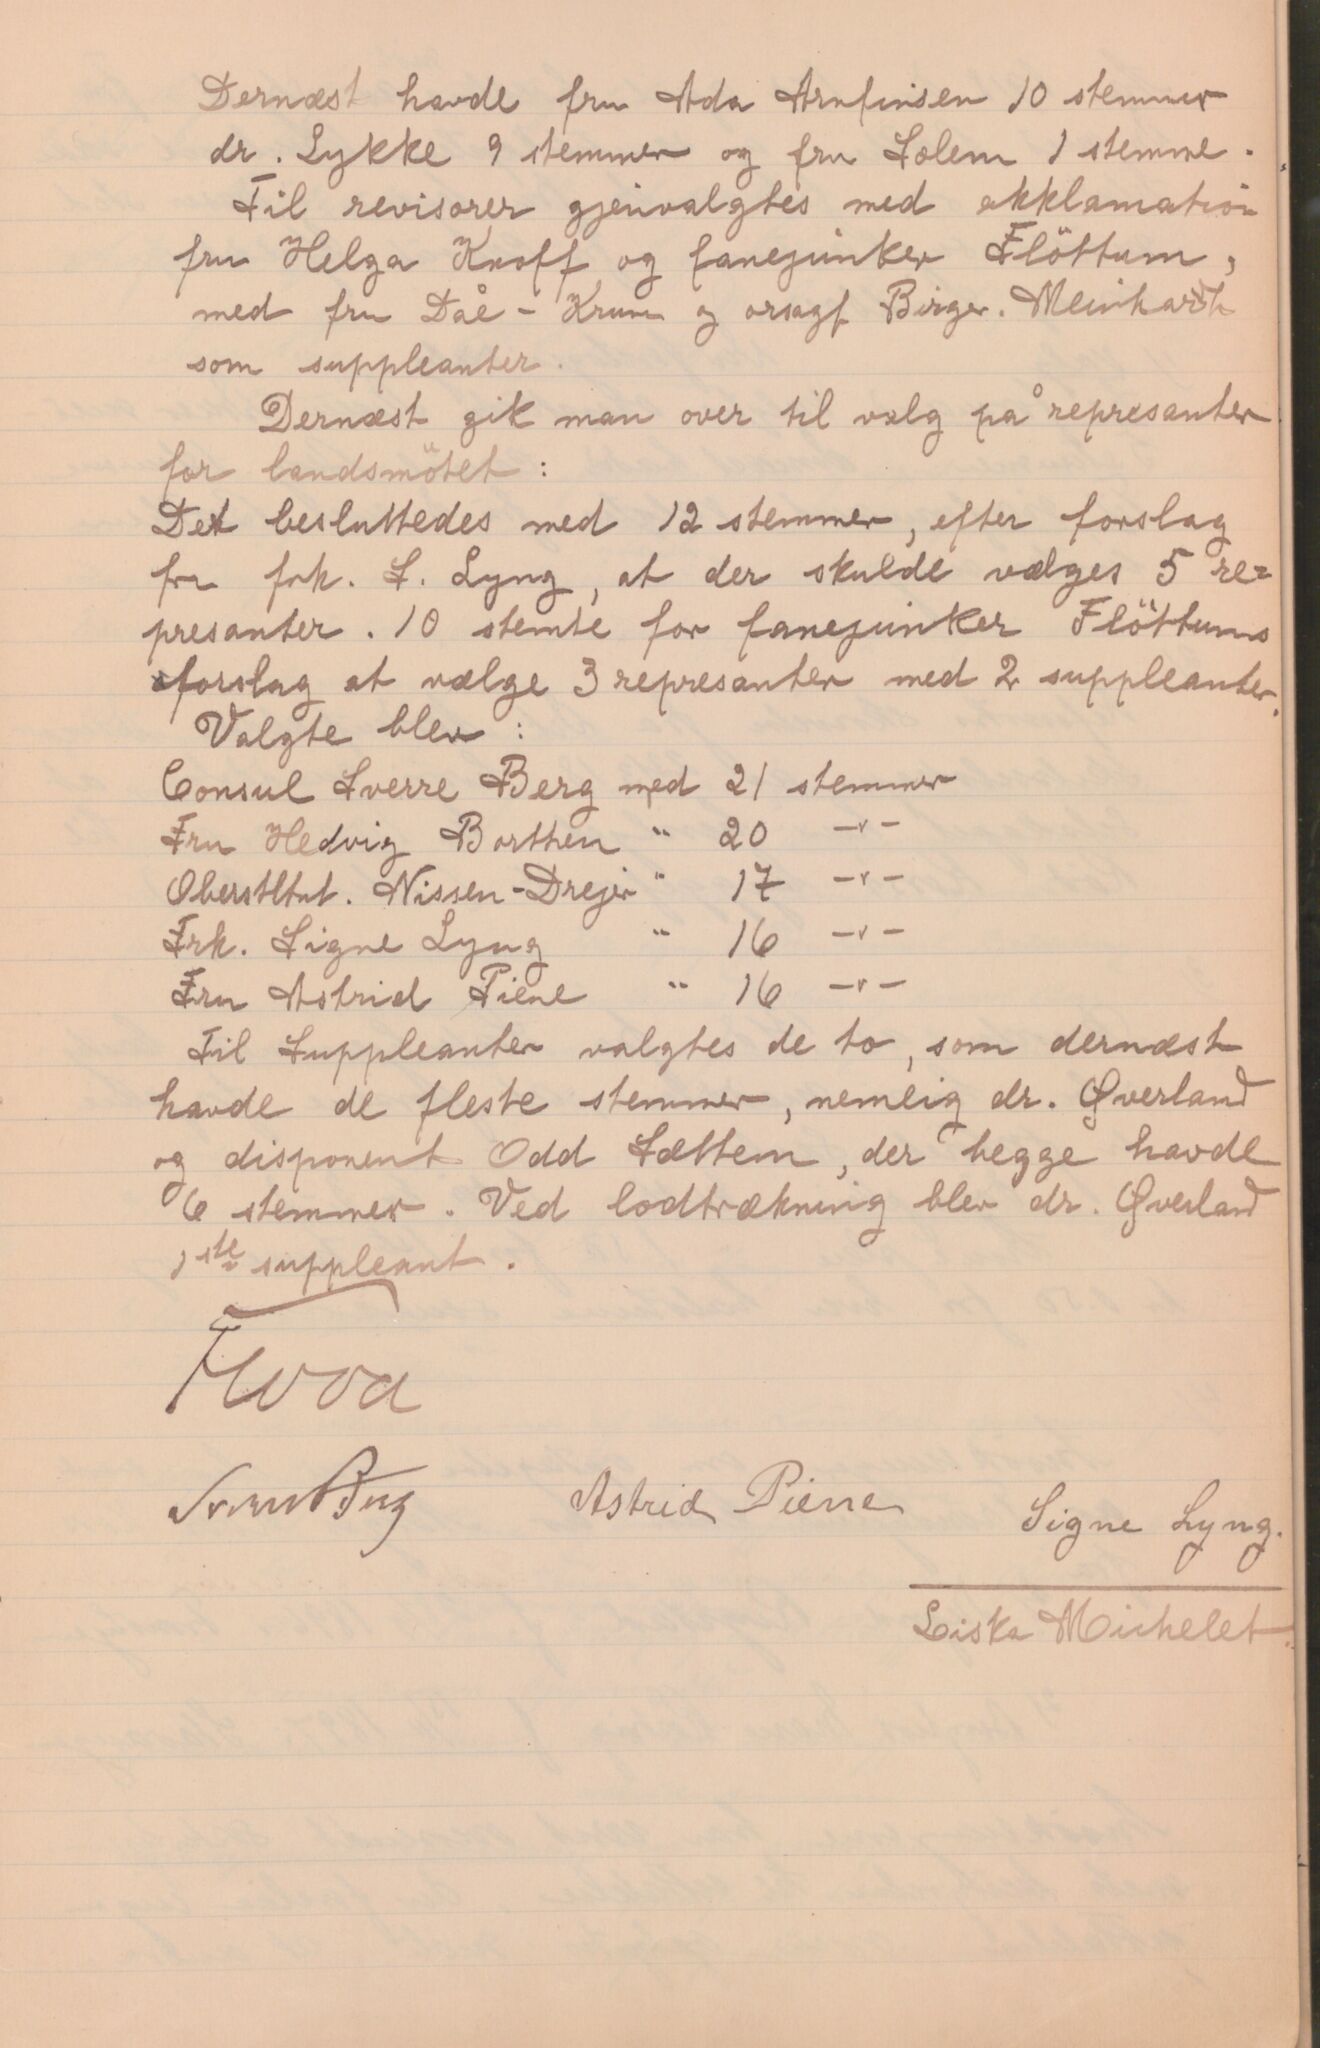 Dernæst havde fru Ada Arnfinsen 10 stemmer
dr. Lykke 9 stemmer og fru Solem 1 stemme.
Til revisorer gjenvalgtes med akklamation
fru Helga Knoff og fanejunker Flöttum,
med fru Daae-Krum og orsagf. Birger. Meinhardt
som suppleanter.
Dernæst gik man over til valg på represanter
for landsmötet:
Det besluttedes med 12 stemmer, efter forslag
fra frk. S. Lyng, at der skulde vælges 5 re-
presanter. 10 stemte for fanejunker Flöttums
forslag at vælge 3 represanter med 2 suppleanter.
Valgte blev:
Consul Sverre Berg med 21 stemmer
Fru Hedvig Borthen " 20 -"-
Oberstltnt. Nissen-Drejer " 17 -"-
Frk. Signe Lyng " 16 -"-
Fru Astrid Piene " 16 -"-
Til Suppleanter valgtes de to, som dernæst
havde de fleste stemmer, nemlig dr. Øverland
og disponent Odd Sættem, der begge havde
6 stemmer. Ved lodtrækning blev dr. Øverland
1ste suppleant.
Sverre Berg Astrid Piene Signe Lyng.
Liska Michelet.